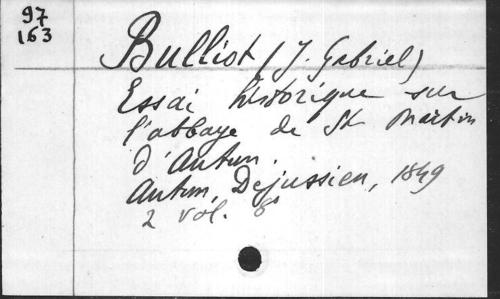 97
163
Bulliot (J. Gabriel)
Essai historique sur
l'abbaye de St Martin
d'Autun.
Autun, Dejussieu, 1849
2 vol. 8°